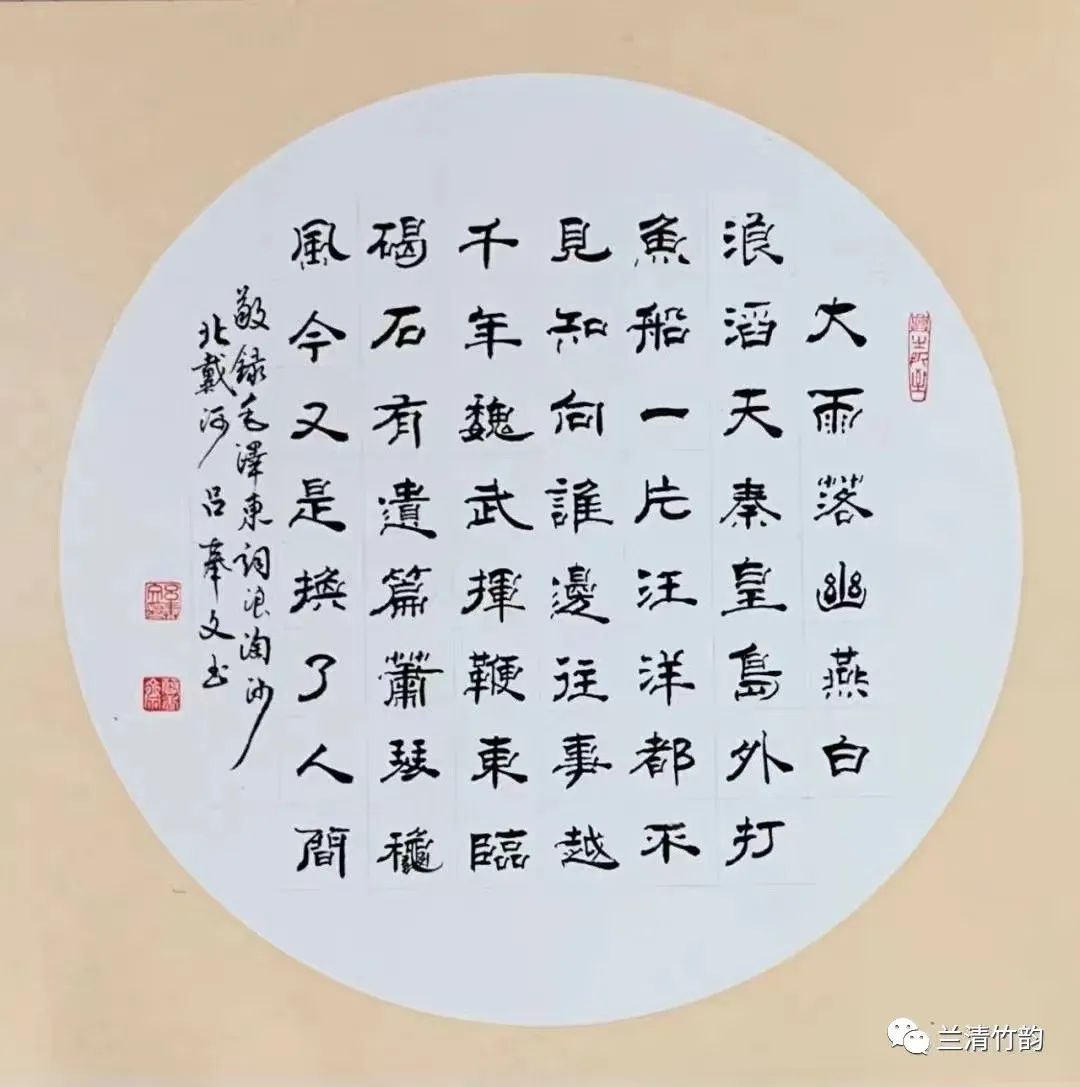 大雨落幽燕白
浪滔天秦皇島外打
魚船一片汪洋都不
見知向誰邊往事越
千年魏武揮鞭東臨
碣石有遺篇蕭瑟穐
風今又是換了人間
敬録毛澤東詞浪淘沙
北戴河 吕奉文书
兰清竹韵